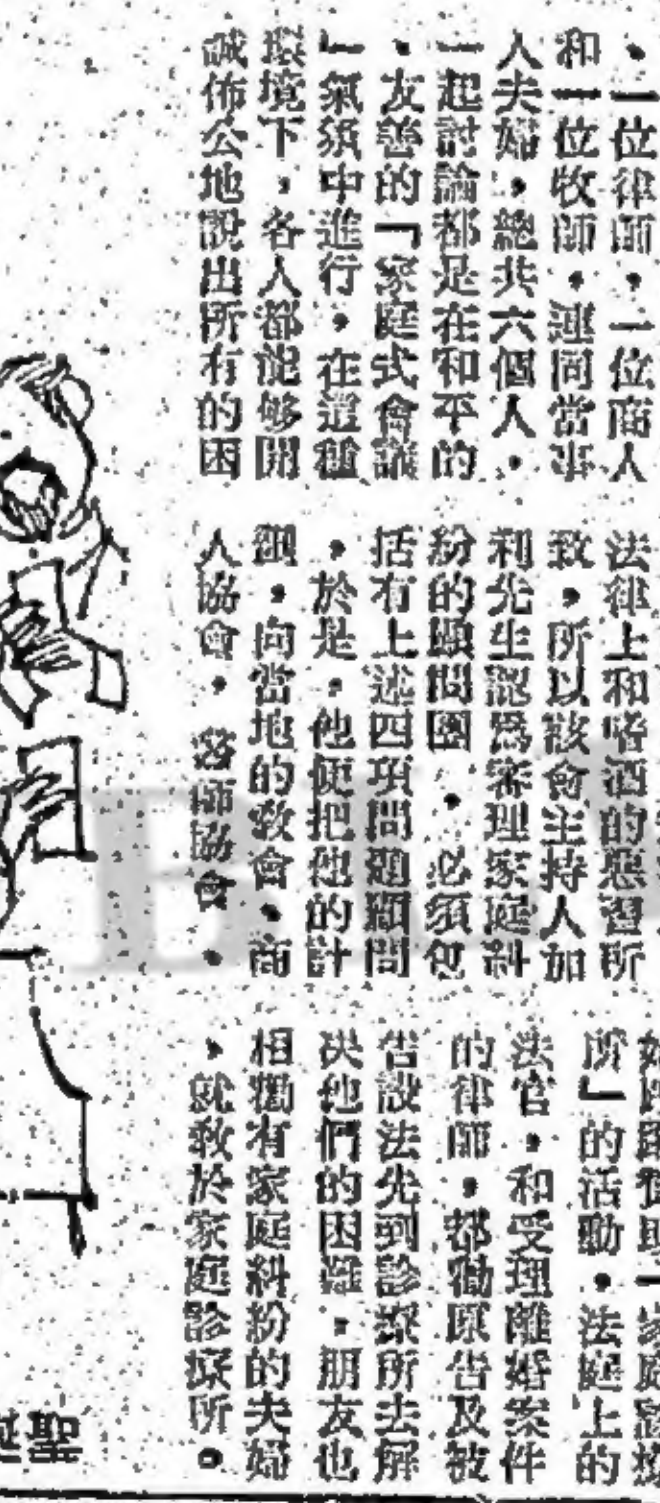 、一位律師，一位商人
和一位牧師，連同當事
人夫婦，總共六個人，
一起討論都是在和平的
、友善的「家庭式會議
」氣氛中進行，在這種
環境下，各人都能够開
誠佈公地說出所有的困
法律上和嗜酒的惡習所
致，所以該會主持人加
利先生認爲審理家庭糾
紛的顧問團，必須包
括有上述四項問題顧問
，於是，他便把他的計
劃，向當地的敎會，商
人協會，
師協會，
家庭診療
所」的活動，法庭上的
法官，和受理離婚案件
的律師，都勸原告及被
告設法先到診療所去解
決他們的困難，朋友也
相勸有家庭糾紛的夫婦
，就敎於家庭診療所。
聖誕